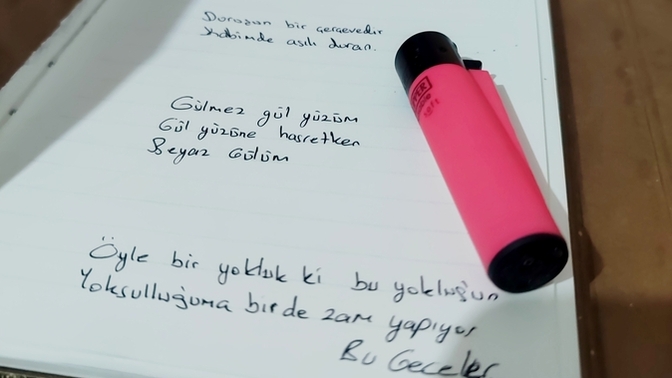 Durağan bir çerçevedir
Kalbimde asılı duran.
Gülmez gül yüzüm
Gül yüzüne hasretken
Beyaz Gülüm
Öyle bir yokluk ki bu yokluğun
Yoksulluğuma birde zam yapıyor
Bu Geceler